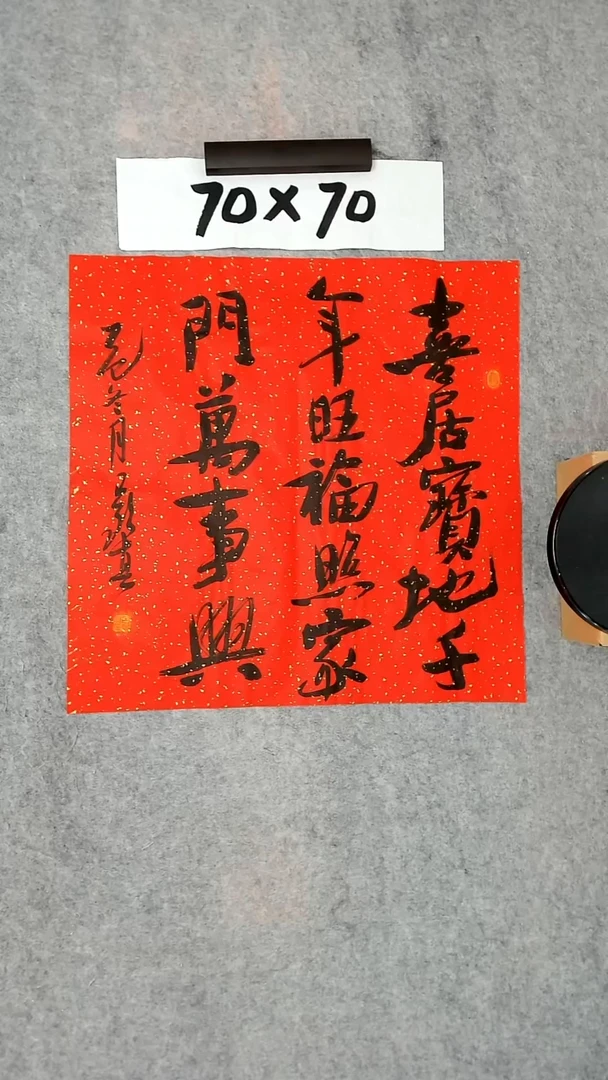 70×70
喜居寶地千
年旺福照家
門萬事興
冬月